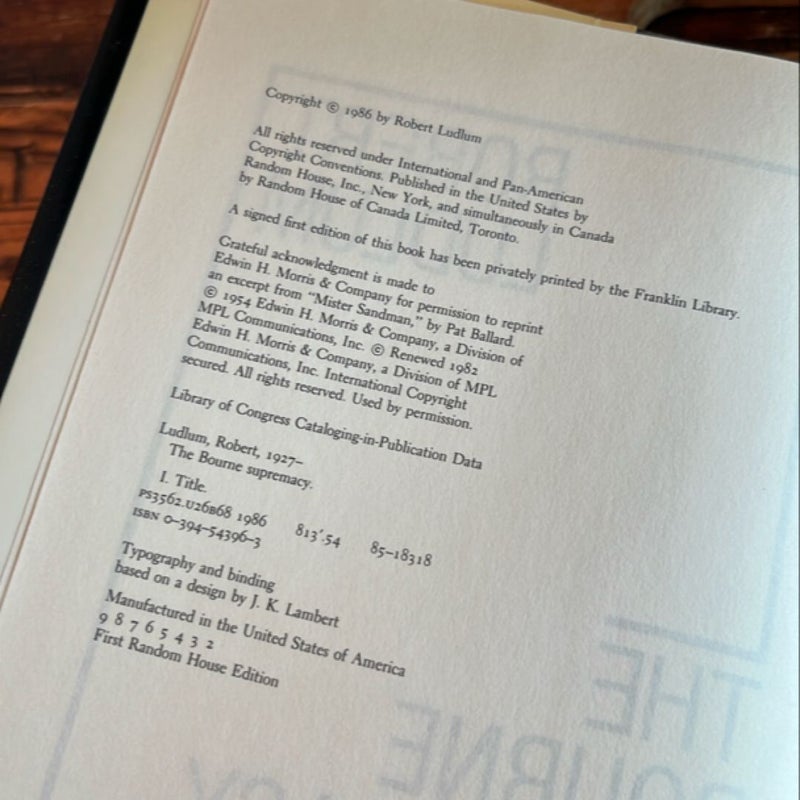 Copyright © 1986 by Robert Ludlum
All rights reserved under International and Pan-American
Copyright Conventions. Published in the United States by
Random House, Inc., New York, and simultaneously in Canada
by Random House of Canada Limited, Toronto.
A signed first edition of this book has been privately printed by the Franklin Library.
Grateful acknowledgment is made to
Edwin H. Morris & Company for permission to reprint
an excerpt from “Mister Sandman,” by Pat Ballard.
© 1954 Edwin H. Morris & Company, a Division of
MPL Communications, Inc. © Renewed 1982
Edwin H. Morris & Company, a Division of MPL
Communications, Inc. International Copyright
secured. All rights reserved. Used by permission.
Library of Congress Cataloging-in-Publication Data
Ludlum, Robert, 1927–
The Bourne supremacy.
I. Title.
PS3562.U26B68 1986 813′.54 85–18318
ISBN 0–394–54396–3
Typography and binding
based on a design by J. K. Lambert
Manufactured in the United States of America
9 8 7 6 5 4 3 2
First Random House Edition
THE
BOURNE